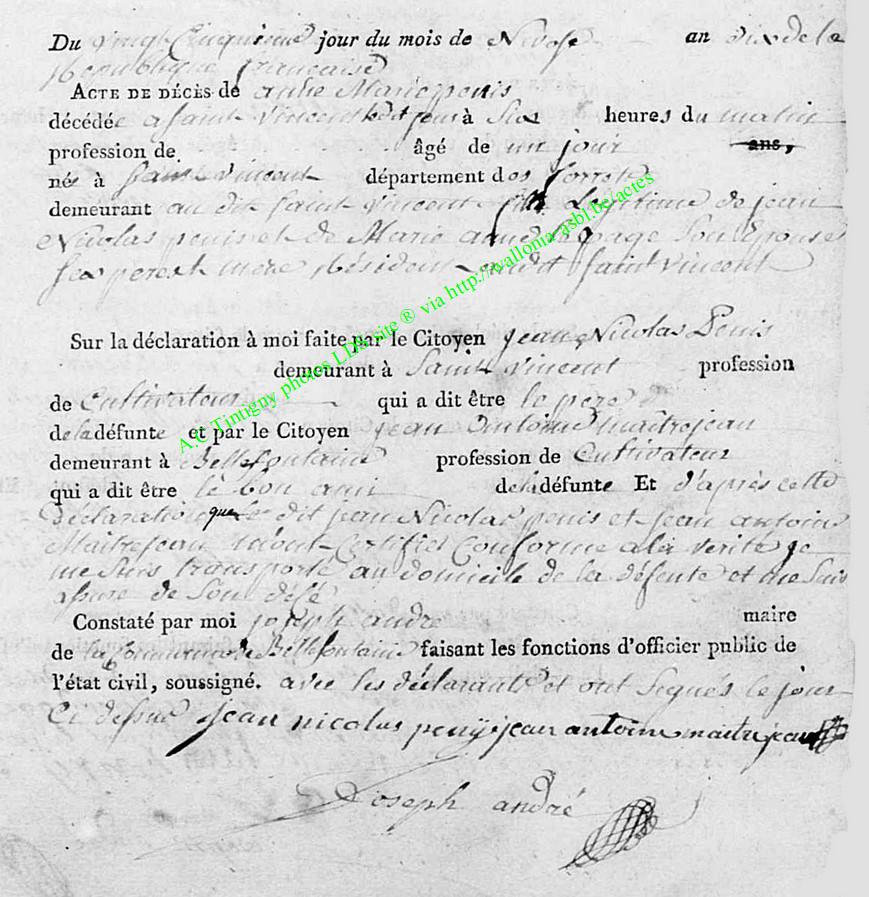 Du vingt Cinquieme jour du mois de Nivose an dix de la
Republique française
ACTE DE DÉCÈS de anne Marie penis
décédée a Saint Vincent à Six heures du matin
profession de âgé de un jour ans,
né à Saint Vincent département des forrets
demeurant au dit Saint Vincent fille Legitime de jean
Nicolas penis et de Marie page Son Epouse
Ses pere et mere Résident audit Saint Vincent
Sur la déclaration à moi faite par le Citoyen jean Nicolas Penis
demeurant à Saint Vincent profession
de Cultivateur qui a dit être le pere
de la défunte et par le Citoyen jean Antoine maitrejean
demeurant à Bellefontaine profession de Cultivateur
qui a dit être le bon ami de la défunte Et d'après cette
déclaration que le dit jean Nicolas penis et jean antoine
Maitrejean m'ont Certifiet Conforme a la verité je
me Suis transporté au domicile de la défente et me Suis
assure de Son désé
Constaté par moi joseph andre maire
de la Commune de Bellefontaine faisant les fonctions d'officier public de
l'état civil, soussigné. avec les déclarants et ont Signés le jour
Et dessus jean nicolas peny jean antoine maitrejean
Joseph andré
A.C Tintigny photos LDS site ® via http://wallonia.asbl.be/actes